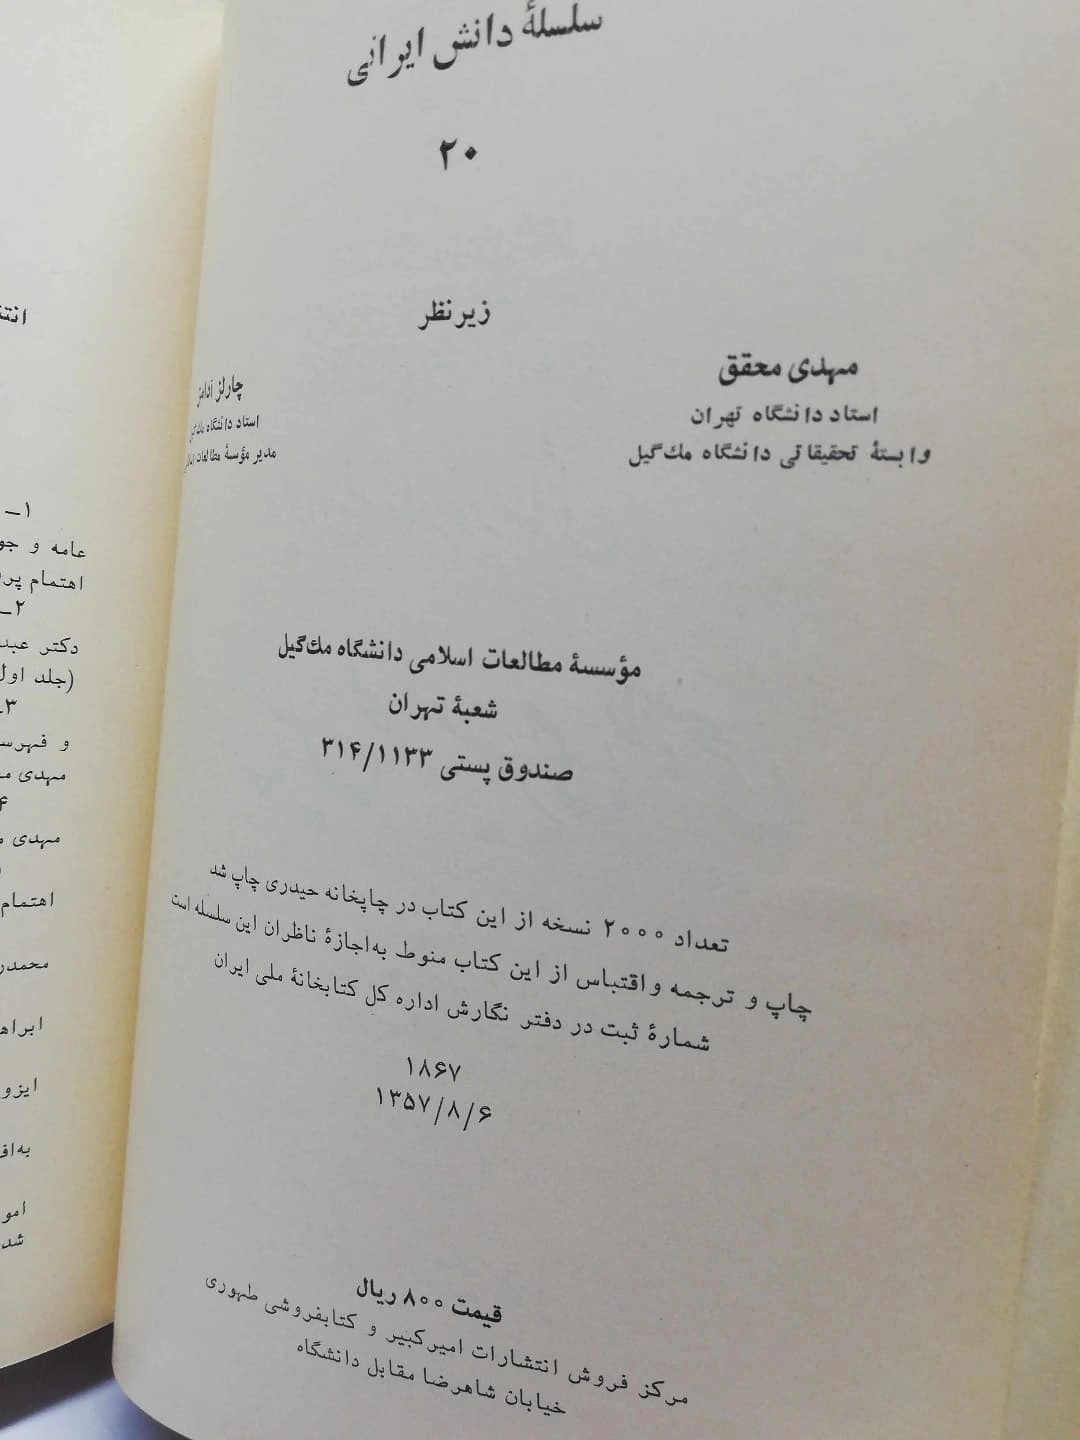 سلسلهٔ دانش ایرانی
۲۰
زیر نظر
مهدی محقق
استاد دانشگاه تهران
وابستهٔ تحقیقاتی دانشگاه مك‌گیل
چارلز آدامز
استاد دانشگاه مك‌گیل
مدیر مؤسسهٔ مطالعات اسلامی
مؤسسهٔ مطالعات اسلامی دانشگاه مك‌گیل
شعبهٔ تهران
صندوق پستی ۳۱۴/۱۱۳۳
تعداد ۲۰۰۰ نسخه از این کتاب در چاپخانه حیدری چاپ شد
چاپ و ترجمه و اقتباس از این کتاب منوط به‌اجازهٔ ناظران این سلسله است
شمارهٔ ثبت در دفتر نگارش اداره کل کتابخانهٔ ملی ایران
۱۸۶۷
۱۳۵۷/۸/۶
قیمت ۸۰۰ ریال
مرکز فروش انتشارات امیرکبیر و کتابفروشی طهوری
خیابان شاهرضا مقابل دانشگاه
۱ـ
عامه و
اهتمام
۲ـ
دکتر
(جلد اول
۳ـ
و
مهدی
۴
مهدی
اهتمام
شد